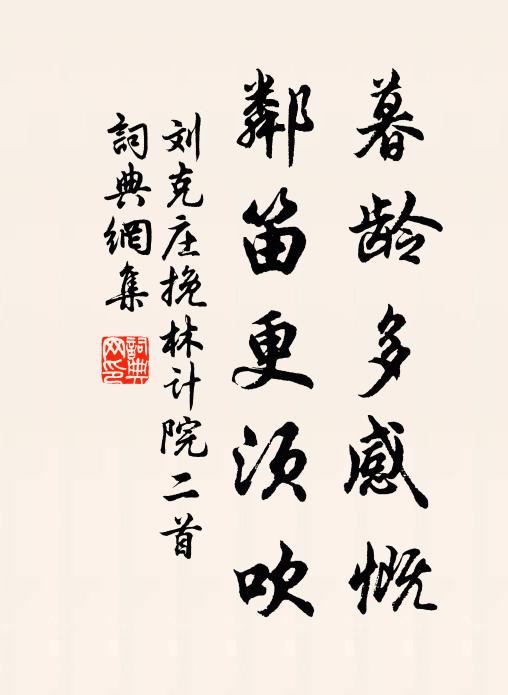 暮龄多感慨
鄰笛更须吹
刘克庄挽林计院二首
詞典網集
詞典网印